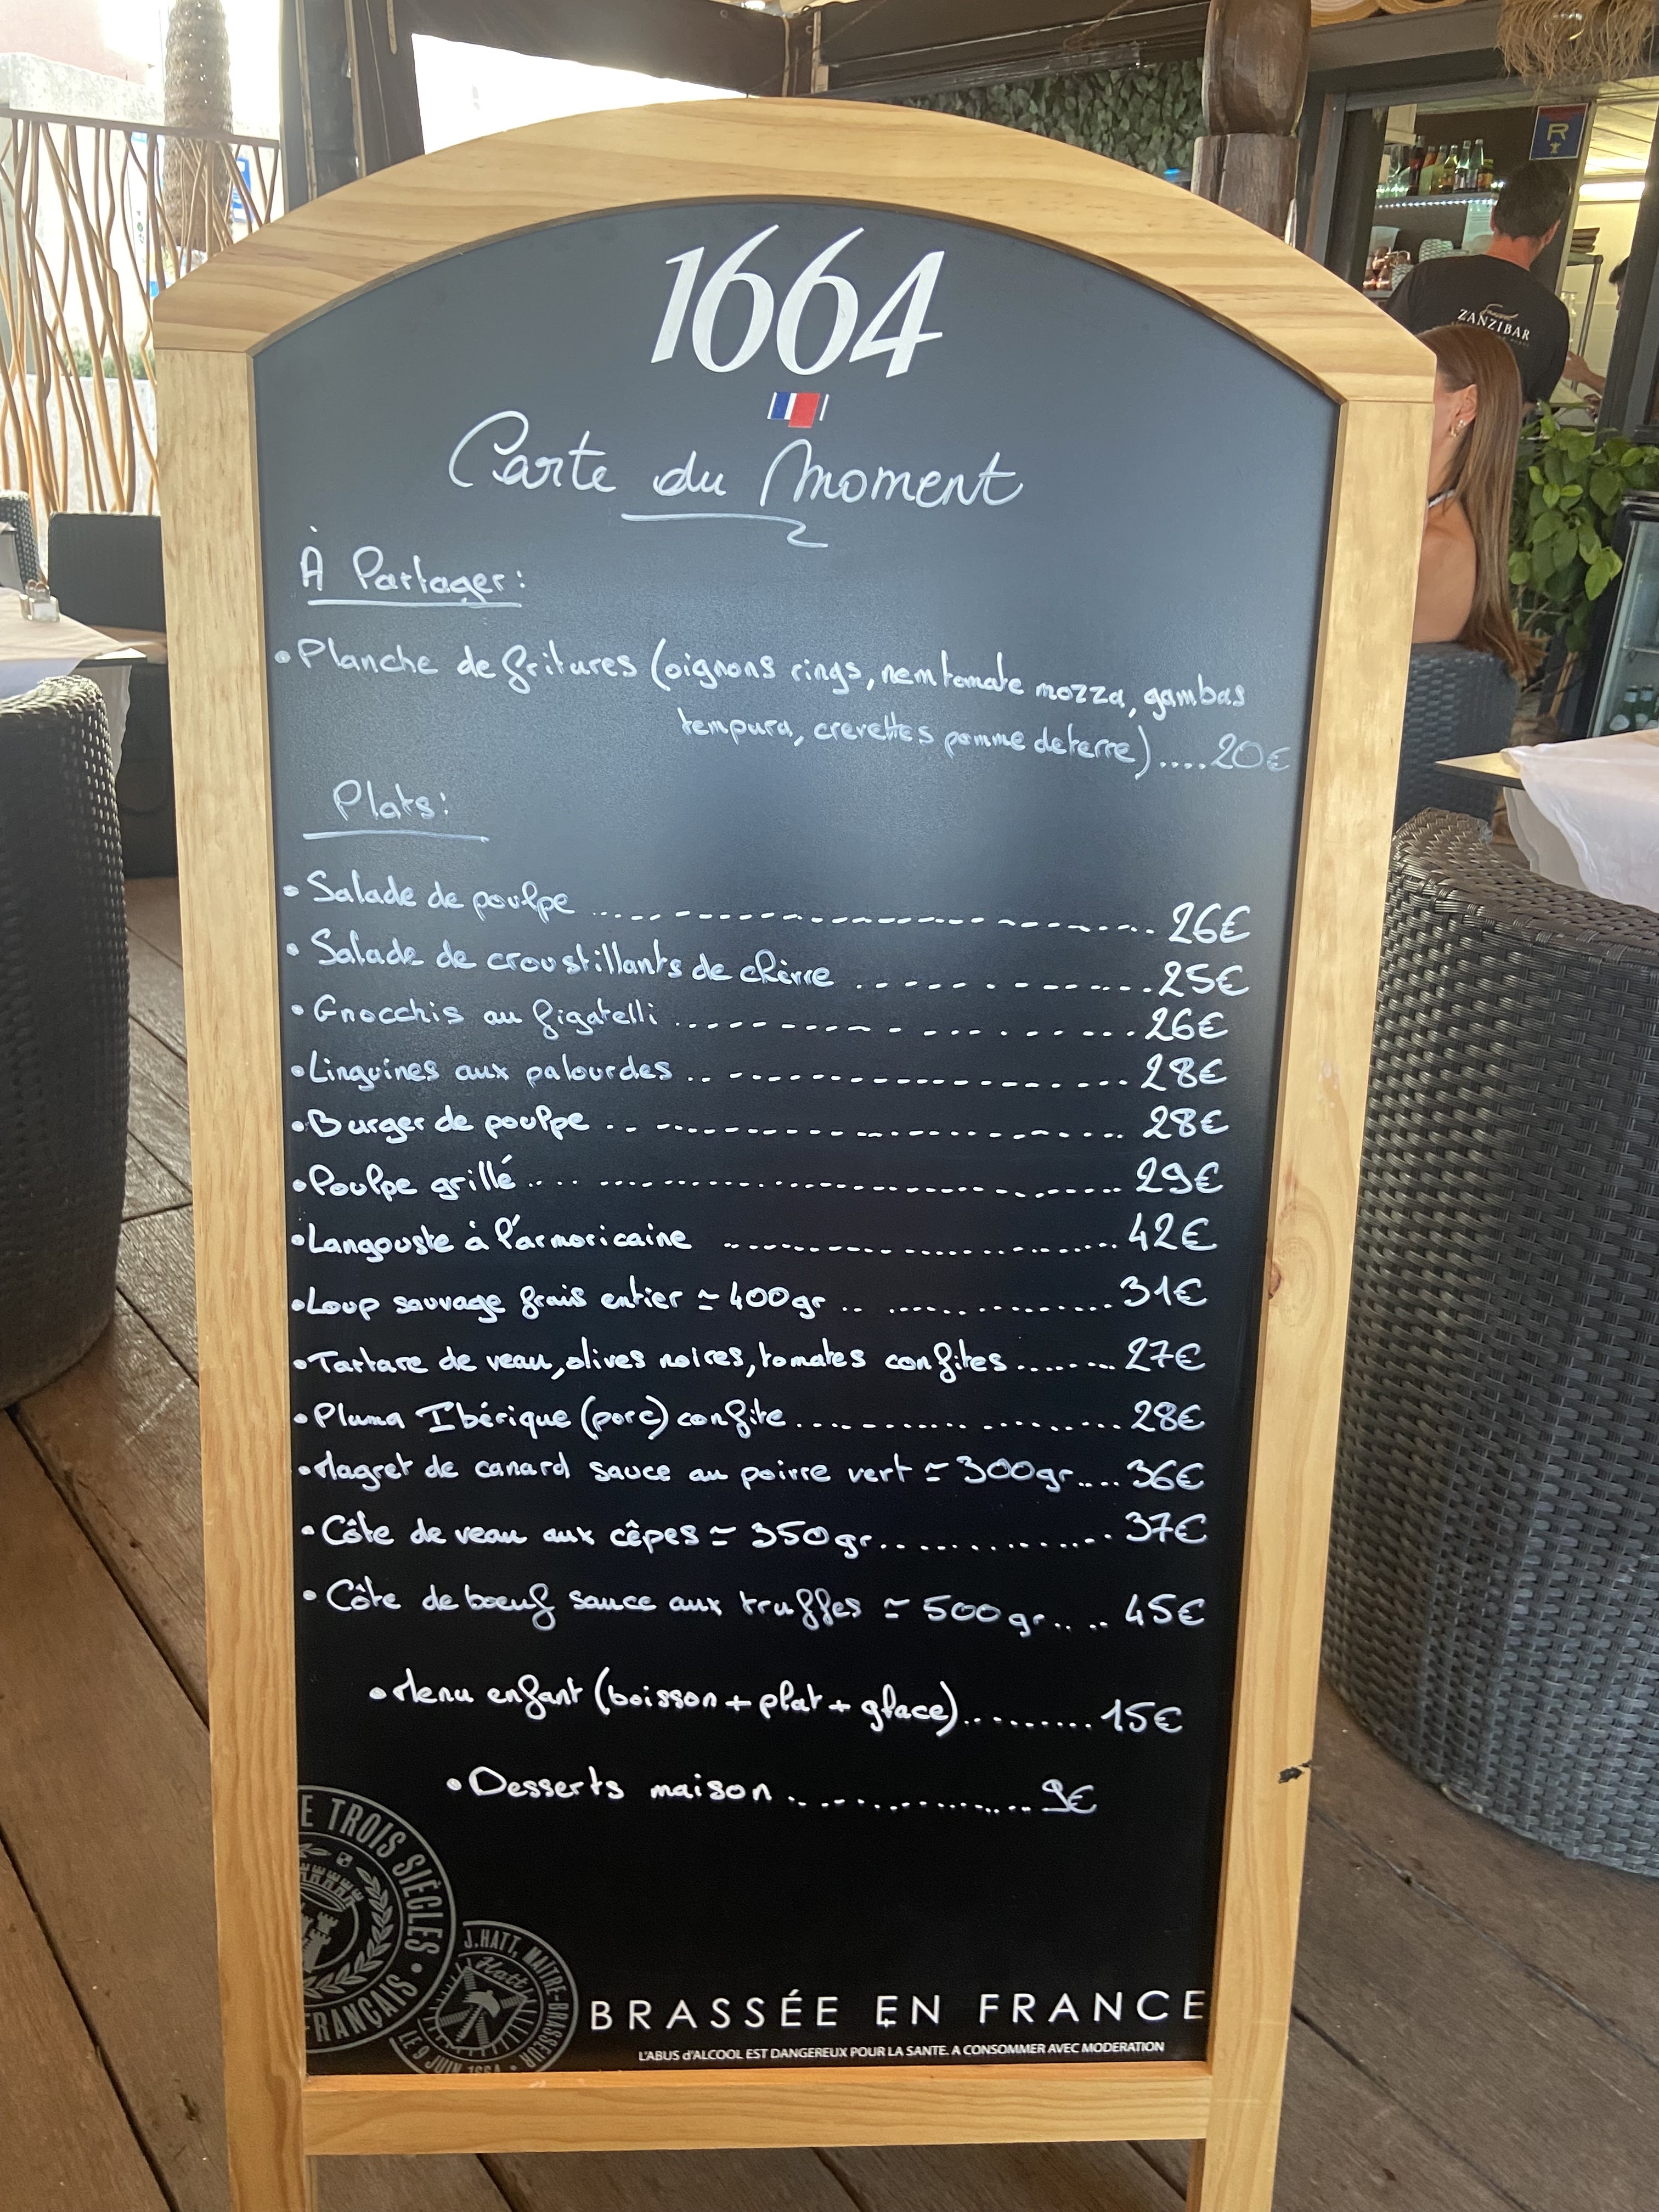 1664
Carte du Moment
À Partager:
•Planche de fritures (oignons rings, nem tomate mozza, gambas
tempura, crevettes pomme de terre).....20€
Plats:
• Salade de poulpe ........ 26€
• Salade de croustillants de chèvre ........ 25€
• Gnocchis au figatelli ........ 26€
•Linguines aux palourdes ........ 28€
•Burger de poulpe ........ 28€
•Poulpe grillé ........ 29€
•Langouste à l'armoricaine ........ 42€
•Loup sauvage frais entier ≃ 400gr ........ 31€
•Tartare de veau, olives noires, tomates confites ........ 27€
•Pluma Ibérique (porc) confite ........ 28€
•Magret de canard sauce au poivre vert ≃ 300gr.... 36€
•Côte de veau aux cêpes ≃ 350gr ........ 37€
• Côte de boeuf sauce aux truffes ≃ 500gr.... 45€
•Menu enfant (boisson + plat + glace) ........ 15€
•Desserts maison ........ 9€
E TROIS SIÈCLES •
FRANÇAIS
J.HATT, MAITRE-BRASSEUR
Hatt
LE 9 JUIN 1664 •
BRASSÉE EN FRANCE
L'ABUS d'ALCOOL EST DANGEREUX POUR LA SANTE. A CONSOMMER AVEC MODERATION
R
ZANZIBAR